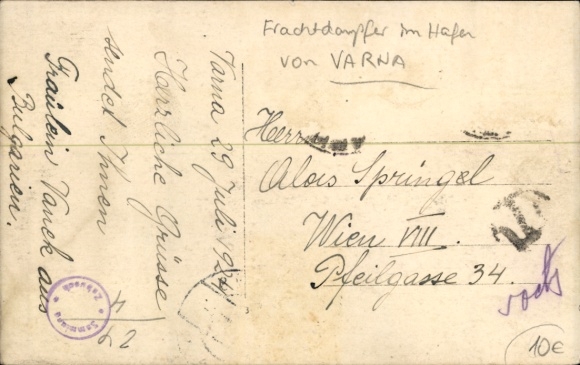 Frachtdampfer im Hafen
von VARNA
Varna 29 Juli
Herzliche Grüsse
sendet Ihnen
Fräulein Vanek aus
Bulgarien.
Herrn
Alois Springel
Wien VIII.
Pfeilgasse 34.
10€